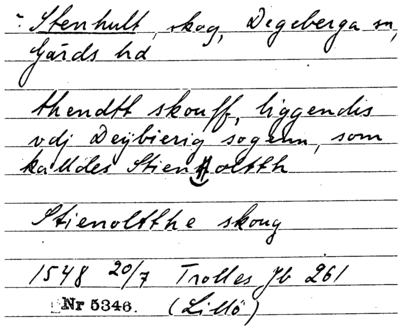 Stenhult, skog, Degeberga sn,
Gärds hd
thendtt skouff, liggendis
vdj Deijbierig sogenn, som
kalldes Stienholtth
Stienoltthe skoug
1548 20/7 Trolles Jb 261
Nr 5346. (Lillö)